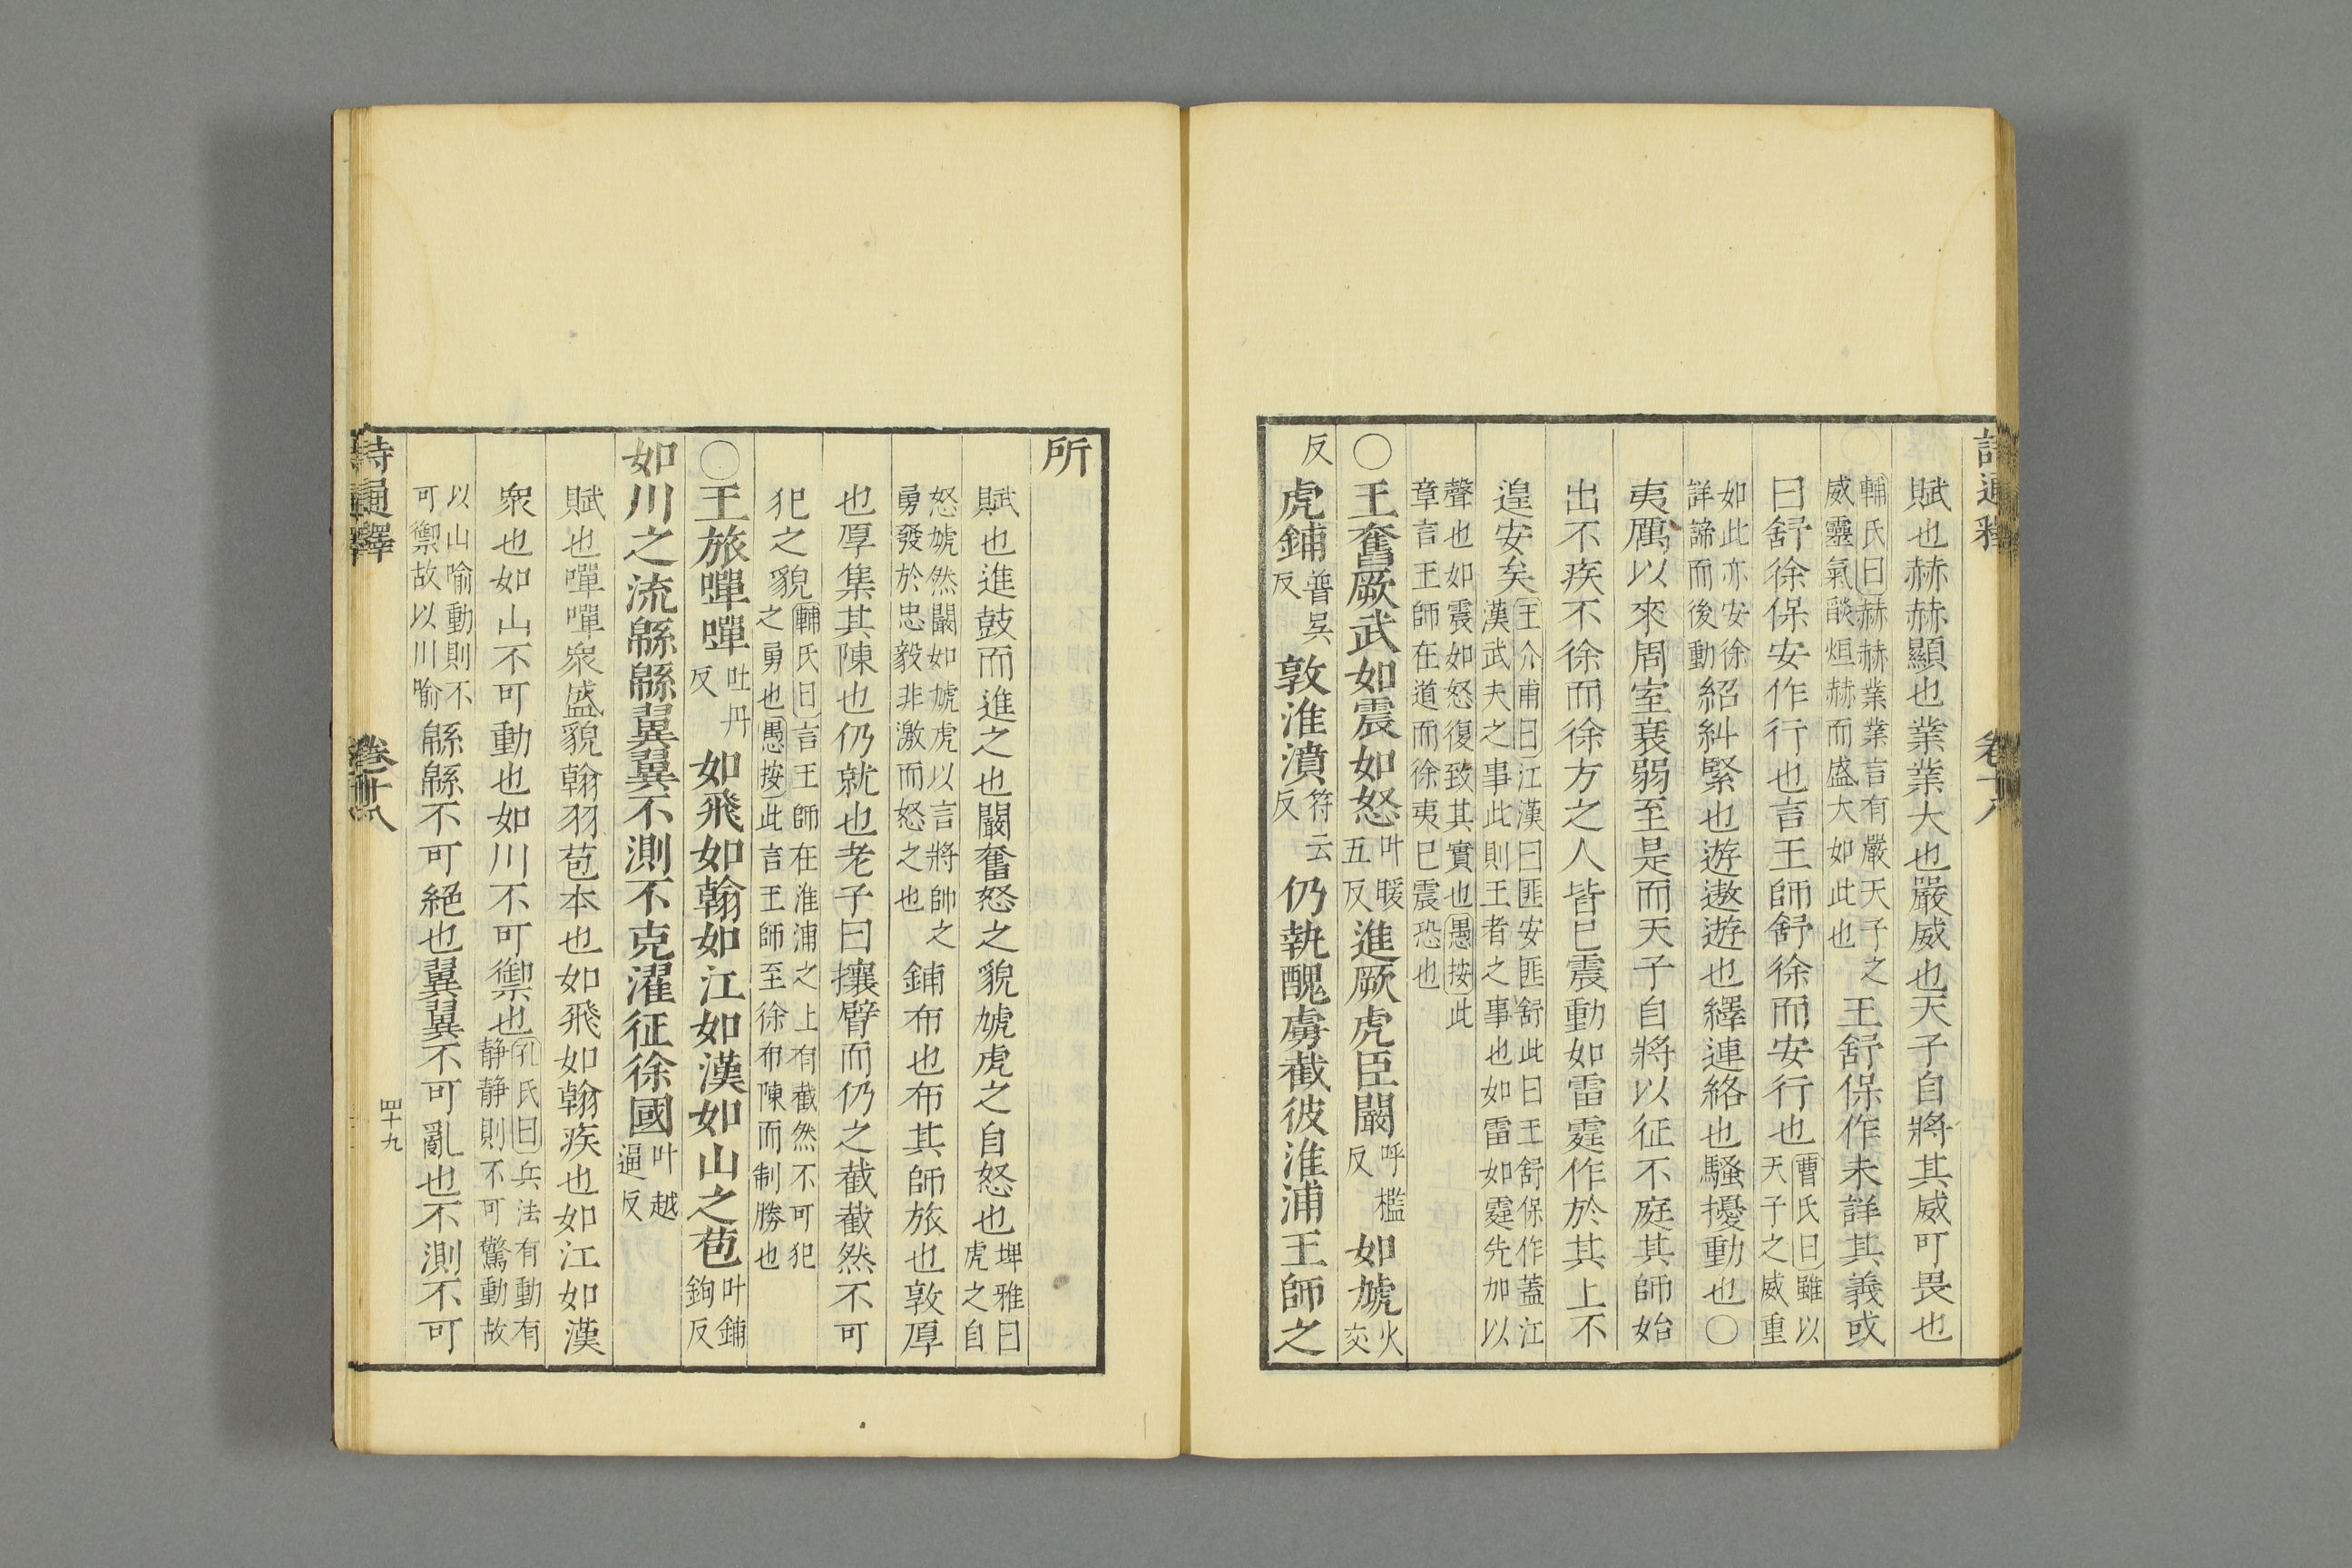 詩通釋 卷十八
賦也赫赫顯也業業大也嚴威也天子自將其威可畏也
輔氏曰赫赫業業言有嚴天子之
威靈氣燄烜赫而盛大如此也
王舒保作未詳其義或
曰舒徐保安作行也言王師舒徐而安行也
曹氏曰雖以
天子之威重
如此亦安徐
詳諦而後動
紹糾緊也遊遨遊也繹連絡也騷擾動也○
夷厲以來周室衰弱至是而天子自將以征不庭其師始
出不疾不徐而徐方之人皆已震動如雷霆作於其上不
遑安矣
王介甫曰江漢曰匪安匪舒此曰王舒保作蓋江
漢武夫之事此則王者之事也如雷如霆先加以
聲也如震如怒復致其實也愚按此
章言王師在道而徐夷已震恐也
○王奮厥武如震如怒
叶暖
五反
進厥虎臣闞
呼檻
反
如虓
火
交
反
虎鋪
普吳
反
敦淮濆
符云
反
仍執醜虜截彼淮浦王師之
所
賦也進鼓而進之也闞奮怒之貌虓虎之自怒也
埤雅曰
虎之自
怒虓然闞如虓虎以言將帥之
勇發於忠毅非激而怒之也
鋪布也布其師旅也敦厚
也厚集其陳也仍就也老子曰攘臂而仍之截截然不可
犯之貌
輔氏曰言王師在淮浦之上有截然不可犯
之勇也愚按此言王師至徐布陳而制勝也
○王旅嘽嘽
吐丹
反
如飛如翰如江如漢如山之苞
叶鋪
鉤反
如川之流緜緜翼翼不測不克濯征徐國
叶越
逼反
賦也嘽嘽衆盛貌翰羽苞本也如飛如翰疾也如江如漢
衆也如山不可動也如川不可禦也
孔氏曰兵法有動有
靜靜則不可驚動故
以山喻動則不
可禦故以川喻
緜緜不可絕也翼翼不可亂也不測不可
詩通釋 卷十八 四十九